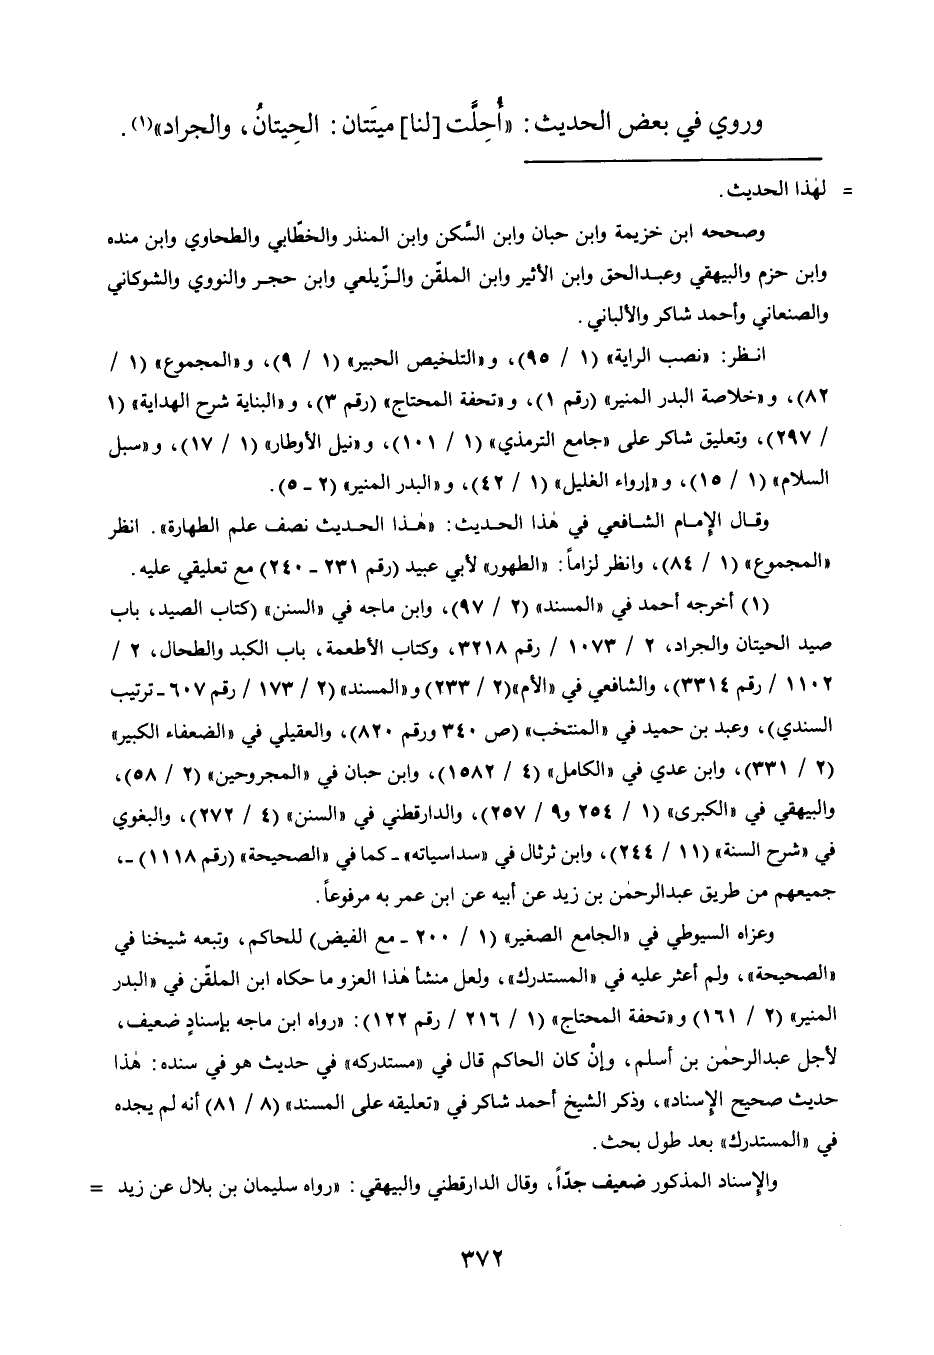 وروي في بعض الحديث: «أُحِلَّت [لنا] ميتَتان: الحِيتانُ، والجراد»(١).
= لهٰذا الحديث.
وصححه ابن خزيمة وابن حبان وابن السَّكن وابن المنذر والخطّابي والطحاوي وابن منده
وابن حزم والبيهقي وعبدالحق وابن الأثير وابن الملقّن والزّيلعي وابن حجر والنووي والشوكاني
والصنعاني وأحمد شاكر والألباني.
انظر: «نصب الراية» (١ / ٩٥)، و«التلخيص الحبير» (١ / ٩)، و«المجموع» (١ /
٨٢)، و«خلاصة البدر المنير» (رقم ١)، و«تحفة المحتاج» (رقم ٣)، و«البناية شرح الهداية» (١
/ ٢٩٧)، وتعليق شاكر على «جامع الترمذي» (١ / ١٠١)، و«نيل الأوطار» (١ / ١٧)، و«سبل
السلام» (١ / ١٥)، و«إرواء الغليل» (١ / ٤٢)، و«البدر المنير» (٢ ـ ٥).
وقال الإمام الشافعي في هٰذا الحديث: «هٰذا الحديث نصف علم الطهارة». انظر
«المجموع» (١ / ٨٤)، وانظر لزاماً: «الطهور» لأبي عبيد (رقم ٢٣١ ـ ٢٤٠) مع تعليقي عليه.
(١) أخرجه أحمد في «المسند» (٢ / ٩٧)، وابن ماجه في «السنن» (كتاب الصيد، باب
صيد الحيتان والجراد، ٢ / ١٠٧٣ / رقم ٣٢١٨، وكتاب الأطعمة، باب الكبد والطحال، ٢ /
١١٠٢ / رقم ٣٣١٤)، والشافعي في «الأم»(٢ / ٢٣٣) و«المسند»(٢ / ١٧٣ / رقم ٦٠٧ ـ ترتيب
السندي)، وعبد بن حميد في «المنتخب» (ص ٣٤٠ ورقم ٨٢٠)، والعقيلي في «الضعفاء الكبير»
(٢ / ٣٣١)، وابن عدي في «الكامل» (٤ / ١٥٨٢)، وابن حبان في «المجروحين» (٢ / ٥٨)،
والبيهقي في «الكبرى» (١ / ٢٥٤ و٩ / ٢٥٧)، والدارقطني في «السنن» (٤ / ٢٧٢)، والبغوي
في «شرح السنة» (١١ / ٢٤٤)، وابن ثرثال في «سداسياته» ـ كما في «الصحيحة» (رقم ١١١٨) ـ،
جميعهم من طريق عبدالرحمٰن بن زيد عن أبيه عن ابن عمر به مرفوعاً.
وعزاه السيوطي في «الجامع الصغير» (١ / ٢٠٠ ـ مع الفيض) للحاكم، وتبعه شيخنا في
«الصحيحة»، ولم أعثر عليه في «المستدرك»، ولعل منشأ هٰذا العزو ما حكاه ابن الملقّن في «البدر
المنير» (٢ / ١٦١) و«تحفة المحتاج» (١ / ٢١٦ / رقم ١٢٢): «رواه ابن ماجه بإسنادٍ ضعيف،
لأجل عبدالرحمٰن بن أسلم، وإنْ كان الحاكم قال في «مستدركه» في حديث هو في سنده: هٰذا
حديث صحيح الإسناد»، وذكر الشيخ أحمد شاكر في «تعليقه على المسند» (٨ / ٨١) أنه لم يجده
في «المستدرك» بعد طول بحث.
والإسناد المذكور ضعيف جدّاً، وقال الدارقطني والبيهقي: «رواه سليمان بن بلال عن زيد =
٣٧٢